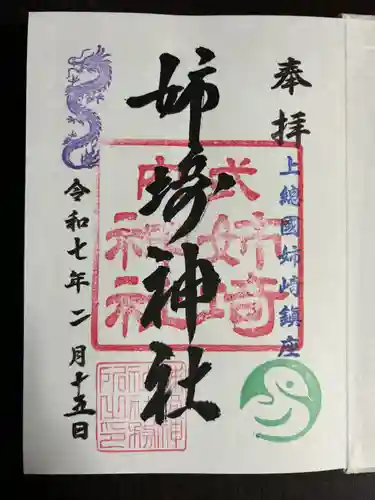 奉拝
上總國姉崎鎮座
姉埼神社
令和七年二月十五日
式内社
姉埼神社